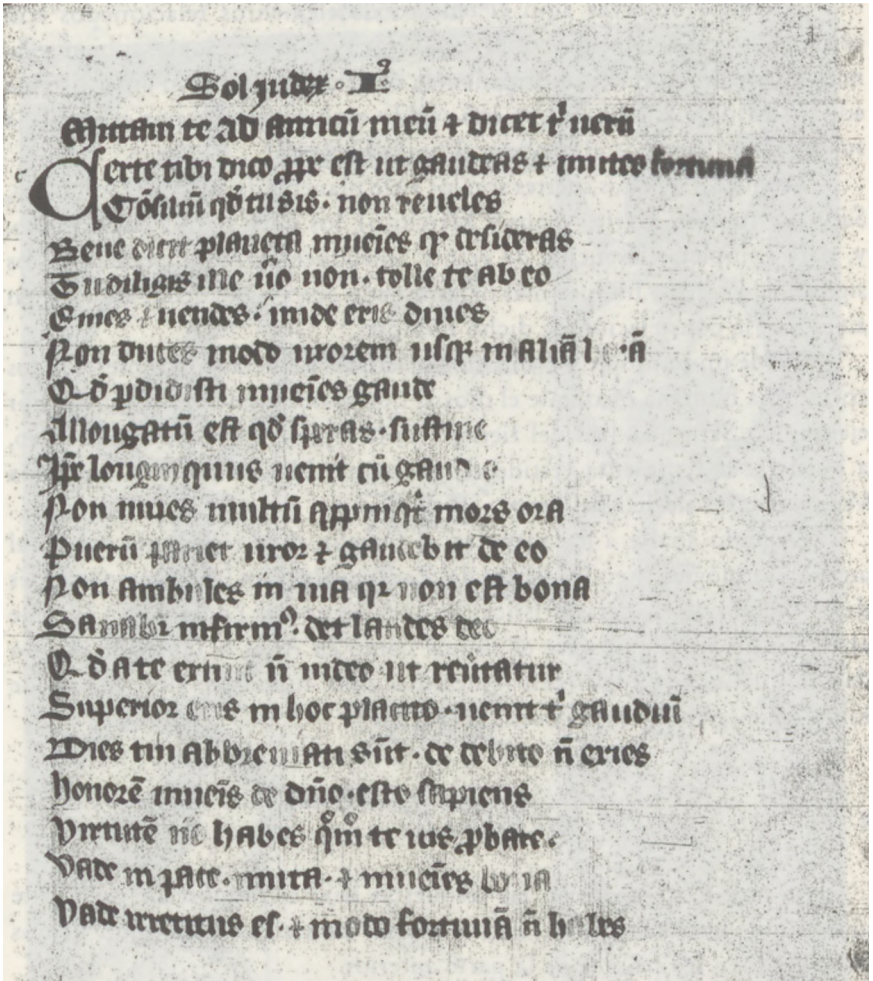 Sol judex · I
Mittam te ad amicū meū ⁊ dicet t' uerū
Certe tibi dico ꝓpe est ut gaudeas ⁊ mutes fortunā
Cōsiliū qd̄ tu sis · non reueles
Bene placeta inueīes desideras
Tu diligis ille ūo non · tolle te ab eo
Emes ⁊ uendes · inde eris diues
Non ducas modo uxorem usqꝫ in aliā
Qd̄ ꝑdidisti inueīes gaude
Allongatū est qd̄ speras · sustine
Ip̄e longinquus uenit cū gaudio
Non uiues multū appīqt mors ora
Puerū pariet uxor ⁊ gaudebit de eo
Non ambules in uia qr non est bona
Sanabit̄ infirmꝰ · det laudes deo
Qd̄ a te exiuit n̄ uideo ut reūtatur
Superior eris in hoc placito · uenit t' gaudiū
Dies tui abbreuiati sūt · de debito n̄ exies
Honorē inueīs de dn̄o · esto sapiens
Virtutē habes te ꝓbate ·
Vade in pace · muta · ⁊ inueīes bona
Vade es · ⁊ modo fortunā n̄ habes